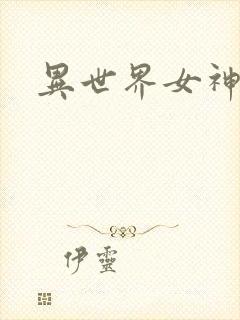 異世界女神
伊靈